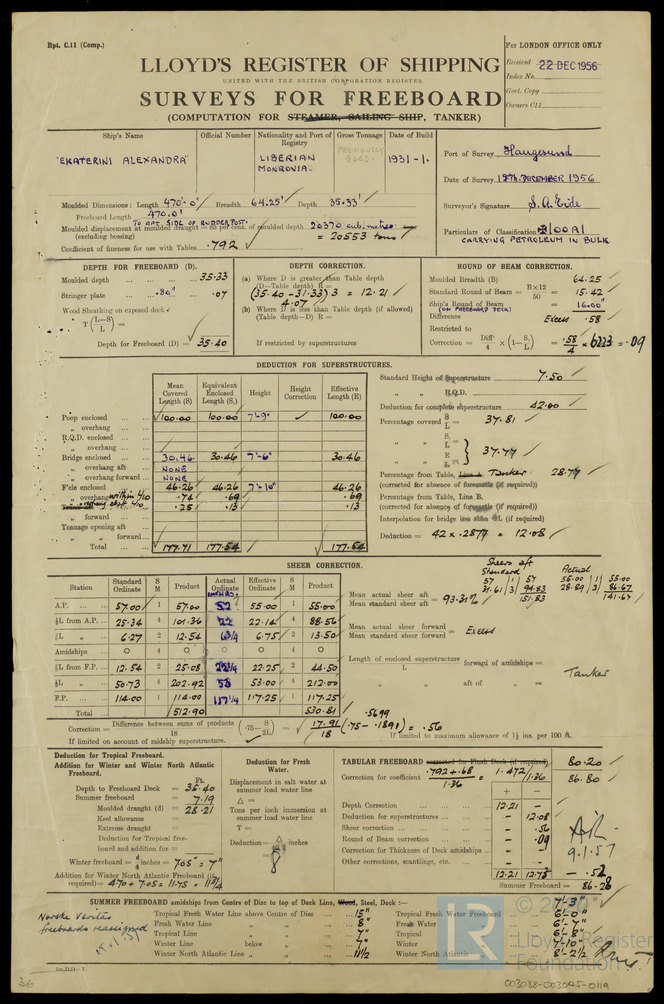 Rpt. C.11 (Comp.)
For LONDON OFFICE ONLY
Received 22 DEC 1956
Index No.
Govt. Copy
Owners C11
LLOYD'S REGISTER OF SHIPPING
UNITED WITH THE BRITISH CORPORATION REGISTER
SURVEYS FOR FREEBOARD
(COMPUTATION FOR STEAMER, SAILING SHIP, TANKER)
Ship's Name Official Number Nationality and Port of Registry Gross Tonnage Date of Build
"EKATERINI ALEXANDRA" LIBERIAN MONROVIA. PREVIOUSLY 9063. 1931-1.
Port of Survey Haugesund
Date of Survey 12TH DECEMBER 1956
Surveyor's Signature S. A. Eide
Particulars of Classification 100A1
CARRYING PETROLEUM IN BULK
Moulded Dimensions: Length 470'.0" Breadth 64.25' Depth 35.33'
Freeboard Length 470.0'
TO AFT SIDE OF RUDDER POST.
Moulded displacement at moulded draught = 85 per cent. of moulded depth 20370 cub. metres
(excluding bossing) = 20553 tons
Coefficient of fineness for use with Tables .792
DEPTH FOR FREEBOARD (D).
Moulded depth 35.33
Stringer plate .80" .07
Wood Sheathing on exposed deck
T (L-S/L) =
Depth for Freeboard (D) = 35.40
DEPTH CORRECTION.
(a) Where D is greater than Table depth
(D-Table depth) R =
(35.40-31.33) 3 = 12.21
4.07
(b) Where D is less than Table depth (if allowed)
(Table depth-D) R =
If restricted by superstructures
ROUND OF BEAM CORRECTION.
Moulded Breadth (B) 64.25
Standard Round of Beam = B×12/50 = 15.42
Ship's Round of Beam = 16.00"
(ON FREEBOARD DECK)
Difference Excess .58
Restricted to
Correction = Diff/4 × (1-S/L) = .58/4 × .6223 = .09
DEDUCTION FOR SUPERSTRUCTURES.
Mean Covered Length (S) Equivalent Enclosed Length (S₁) Height Height Correction Effective Length (E)
Poop enclosed 100.00 100.00 7'-9" 100.00
" overhang
R.Q.D. enclosed
" overhang
Bridge enclosed 30.46 30.46 7'-6" 30.46
" overhang aft NONE
" overhang forward NONE
F'cle enclosed 46.26 46.26 7'-10" 46.26
" overhang within 4/10 .74 .69 .69
.25 .13 .13
" forward
Tonnage opening aft
" " forward
Total 177.71 177.54 177.54
Standard Height of Superstructure 7.50
" " R.Q.D.
Deduction for complete superstructure 42.00
Percentage covered S/L = 37.81
" " S₁/L =
" " E/L = 37.77
Percentage from Table, Line A. Tanker 28.77
(corrected for absence of forecastle (if required))
Percentage from Table, Line B.
(corrected for absence of forecastle (if required))
Interpolation for bridge less than .2L (if required)
Deduction = 42 × .2877 = 12.08
SHEER CORRECTION.
Station Standard Ordinate S M Product Actual Ordinate Effective Ordinate S M Product
A.P. 57.00 1 57.00 52 55.00 1 55.00
⅙L from A.P. 25.34 4 101.36 22 22.14 4 88.56
⅓L " 6.27 2 12.54 6¾ 6.75 2 13.50
Amidships 0 4 0 0 0 4 0
⅓L from F.P. 12.54 2 25.08 22¼ 22.25 2 44.50
⅙L " 50.73 4 202.92 53 53.00 4 212.00
F.P. 114.00 1 114.00 117¼ 117.25 1 117.25
Total 512.90 530.81
Sheers aft
Standard Actual
57 1 57 55.00 1 55.00
31.61 3 94.83 28.89 3 86.67
151.83 141.67
Mean actual sheer aft
Mean standard sheer aft = 93.31%
Mean actual sheer forward
Mean standard sheer forward = Excess
Length of enclosed superstructure forward of amidships =
L
" " aft of " =
Tanker
Correction = Difference between sums of products/18 (.75 - S/2L) = 17.91/18 (.75 - .1891) = .56
.5699
If limited on account of midship superstructure. If limited to maximum allowance of 1½ ins. per 100 ft.
Deduction for Tropical Freeboard.
Addition for Winter and Winter North Atlantic Freeboard.
Ft.
Depth to Freeboard Deck = 35.40
Summer freeboard = 7.19
Moulded draught (d) = 28.21
Keel allowance =
Extreme draught =
Deduction for Tropical freeboard and addition for
Winter freeboard = d/4 inches = 7.05" = 7"
Addition for Winter North Atlantic Freeboard (if required) = 4.70 + 7.05 = 11.75 = 11¾
Deduction for Fresh Water.
Displacement in salt water at summer load water line
Δ =
Tons per inch immersion at summer load water line
T =
Deduction = Δ/40T inches
= 8"
TABULAR FREEBOARD corrected for Flush Deck (if required) 80.20
Correction for coefficient .792+.68/1.36 = 1.472/1.36 86.80
+ -
Depth Correction 12.21 -
Deduction for superstructures - 12.08
Sheer correction - .56
Round of Beam correction - .09
Correction for Thickness of Deck amidships - -
Other corrections, scantlings, etc. - -
12.21 12.73 - .52
Summer Freeboard = 86.28
9.1.57
SUMMER FREEBOARD amidships from Centre of Disc to top of Deck Line, Wood, Steel, Deck:- 7'-3"
Tropical Fresh Water Line above Centre of Disc 15" Tropical Fresh Water Freeboard 6'-0"
Fresh Water Line " " 8" Fresh Water " 6'-7"
Tropical Line " " 7" Tropical " 6'-8"
Winter Line below " " 7" Winter " 7'-10"
Winter North Atlantic Line " " 11½ Winter North Atlantic " 8'-2½
Norske Veritas
freeboards reassigned
Lloyd's Register
Foundation
003038-003045-0119